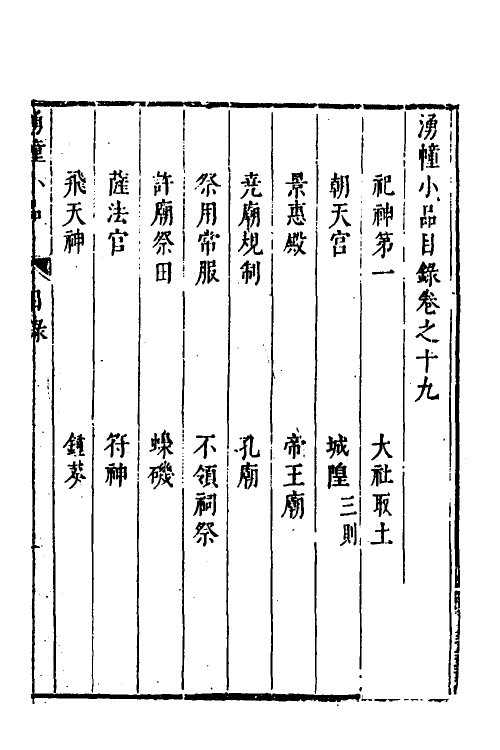 湧幢小品目錄卷之十九
祀神第一　大社取土
朝天宮　城隍三則
景惠殿　帝王廟
堯廟規制　孔廟
祭用常服　不領祠祭
許廟祭田　蟂磯
薩法官　符神
飛天神　鍾葵
湧幢小品　目錄